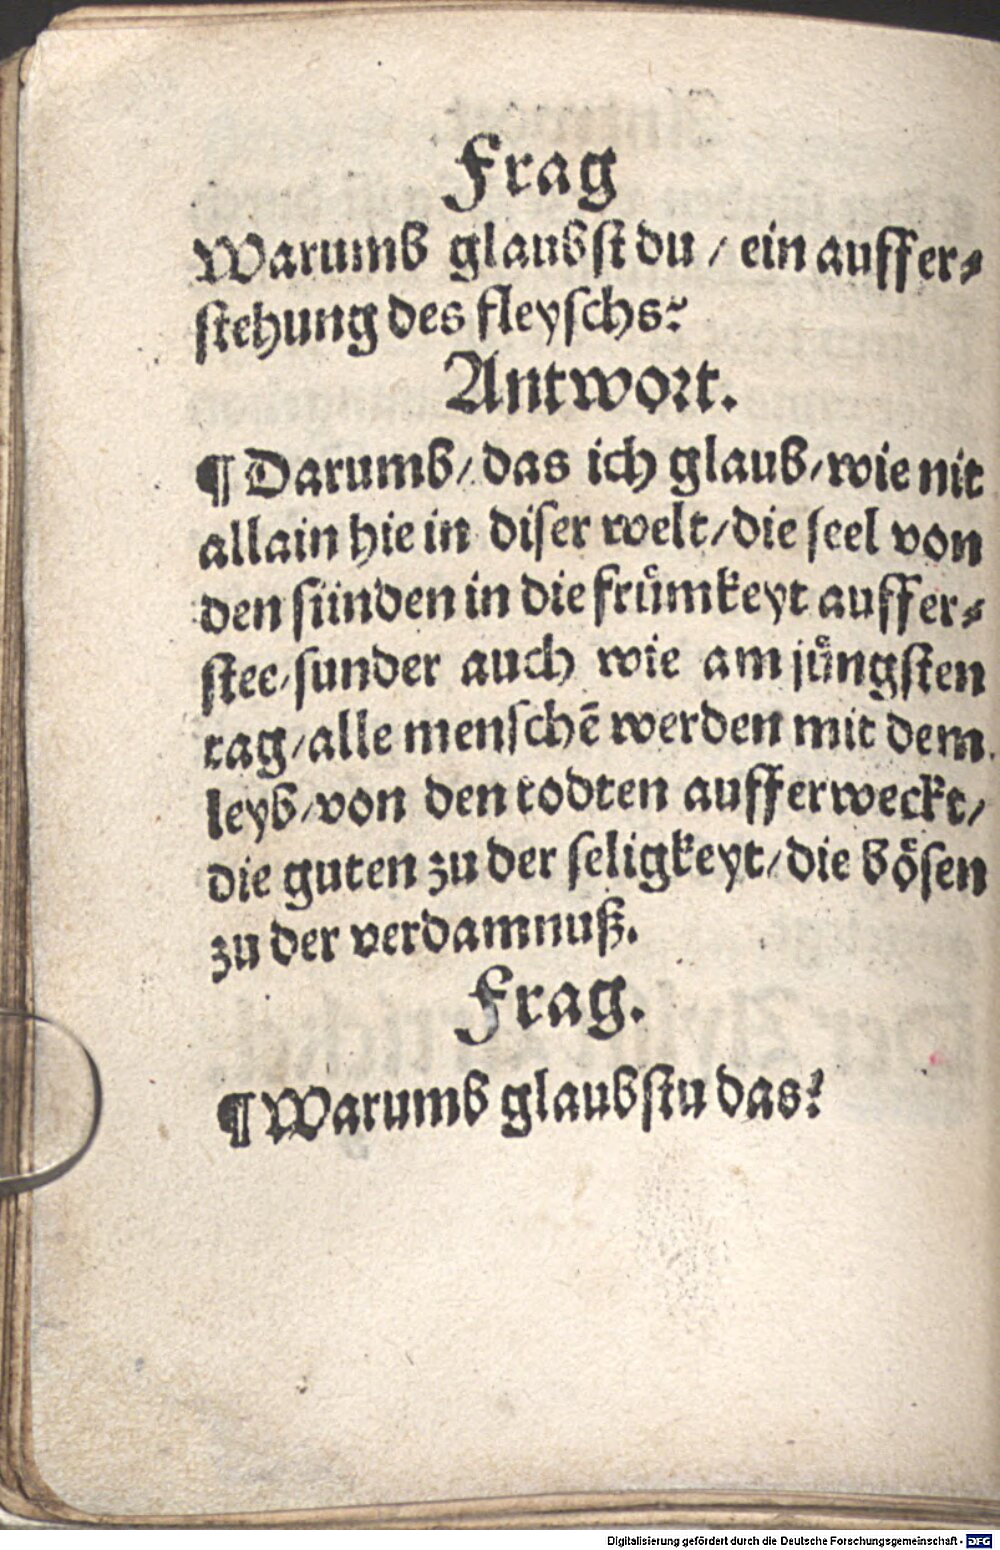 Frag
Warumb glaubst du / ein auffer⸗
stehung des fleyschs?
Antwort.
¶ Darumb / das ich glaub / wie nit
allain hie in diser welt / die seel von
den sünden in die frümkeyt auffer⸗
stee / sunder auch wie am jüngsten
tag / alle menschē werden mit dem
leyb / von den todten aufferweckt /
die guten zu der seligkeyt / die bösen
zu der verdamnuß.
Frag.
¶ Warumb glaubstu das?
Digitalisierung gefördert durch die Deutsche Forschungsgemeinschaft - DFG